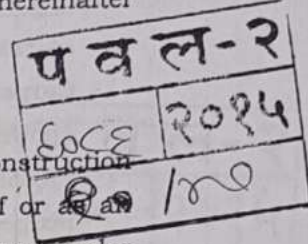 hereinafter
प व ल - २
६०८६ २०१५
nstruction
f or as an